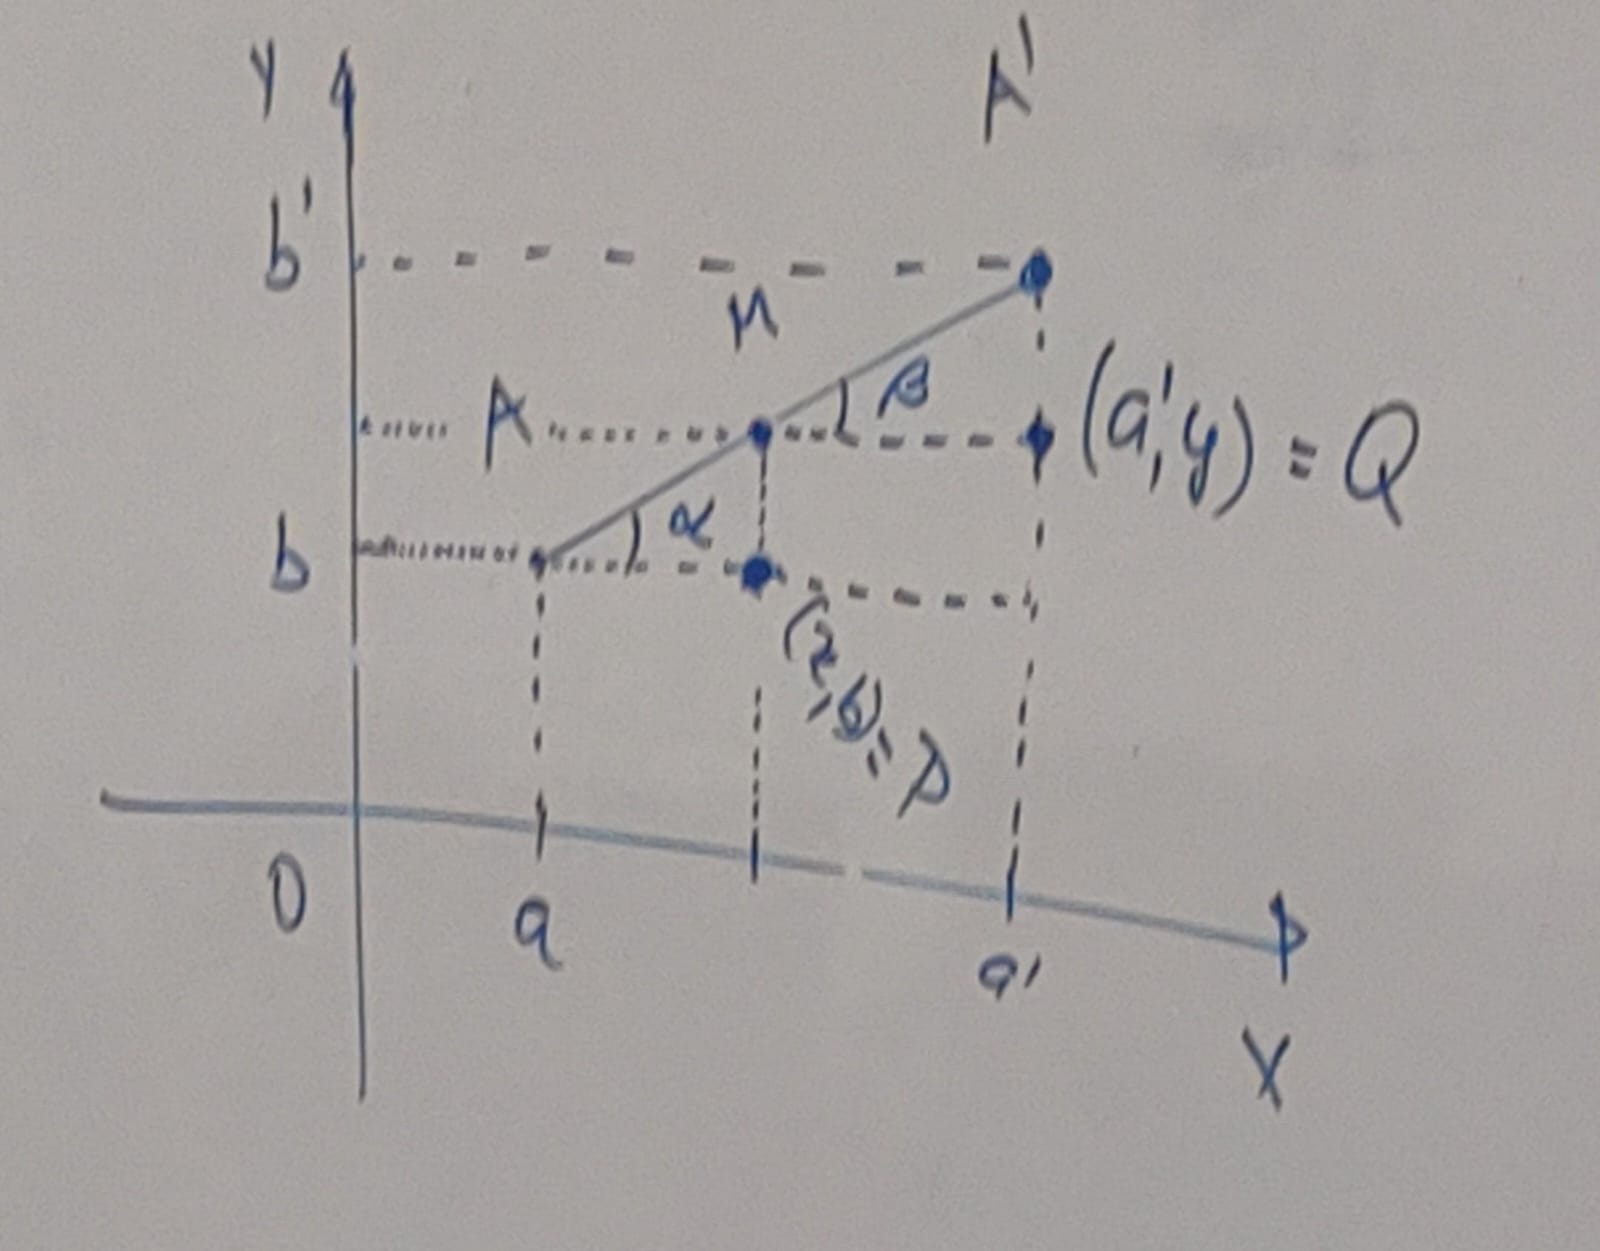 y
A'
b'
M
β
A
(a',y) = Q
α
b
(x,b) = P
O
a
a'
X